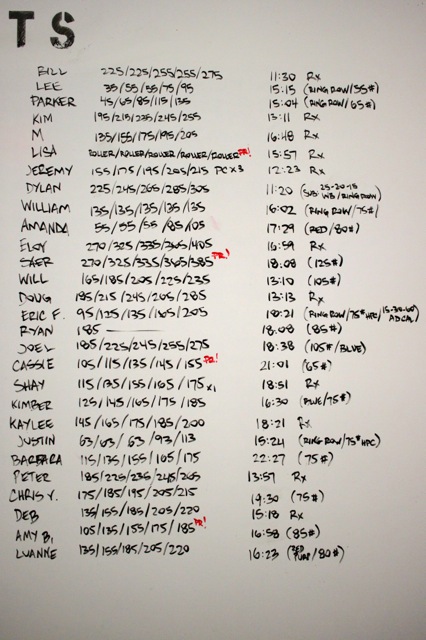 TS
BILL 225/225/255/255/275 11:30 Rx
LEE 35/55/55/75/95 15:15 (RING ROW/55#)
PARKER 45/65/85/115/135 15:04 (RING ROW/65#)
KIM 195/215/235/245/255 13:11 Rx
M 135/155/175/195/205 16:48 Rx
LISA ROLLER/ROLLER/ROLLER/ROLLER/ROLLER PR! 15:57 Rx
JEREMY 155/175/195/205/215 PC x3 12:23 Rx
DYLAN 225/245/265/285/305 11:20 (SUB: 25-20-15 WB/RING ROW)
WILLIAM 135/135/135/135/135 16:02 (RING ROW/75#)
AMANDA 55/55/55/85/105 17:29 (RED/80#)
ELOY 270/325/335/365/405 16:59 Rx
SAER 270/325/335/365/385 PR! 18:08 (125#)
WILL 165/185/205/225/235 13:10 (105#)
DOUG 195/215/245/265/285 13:13 Rx
ERIC F. 95/125/135/165/205 18:21 (RING ROW/75# HPC/15-30-60 AD CAL)
RYAN 185 18:08 (85#)
JOEL 185/225/245/255/275 18:38 (105#/BLUE)
CASSIE 105/115/135/145/155 PR! 21:01 (65#)
SHAY 115/135/155/165/175 x1 18:51 Rx
KIMBER 125/145/165/175/185 16:30 (BLUE/75#)
KAYLEE 145/165/175/185/200 18:21 Rx
JUSTIN 63/63/63/93/113 15:24 (RING ROW/75# HPC)
BARBARA 115/135/155/165/175 22:27 (75#)
PETER 185/225/235/245/265 13:57 Rx
CHRIS Y. 175/185/195/205/215 19:30 (75#)
DEB 135/155/185/205/220 15:18 Rx
AMY B. 105/135/155/175/185 PR! 16:58 (85#)
LUANNE 135/155/185/205/220 16:23 (RED PURP/80#)